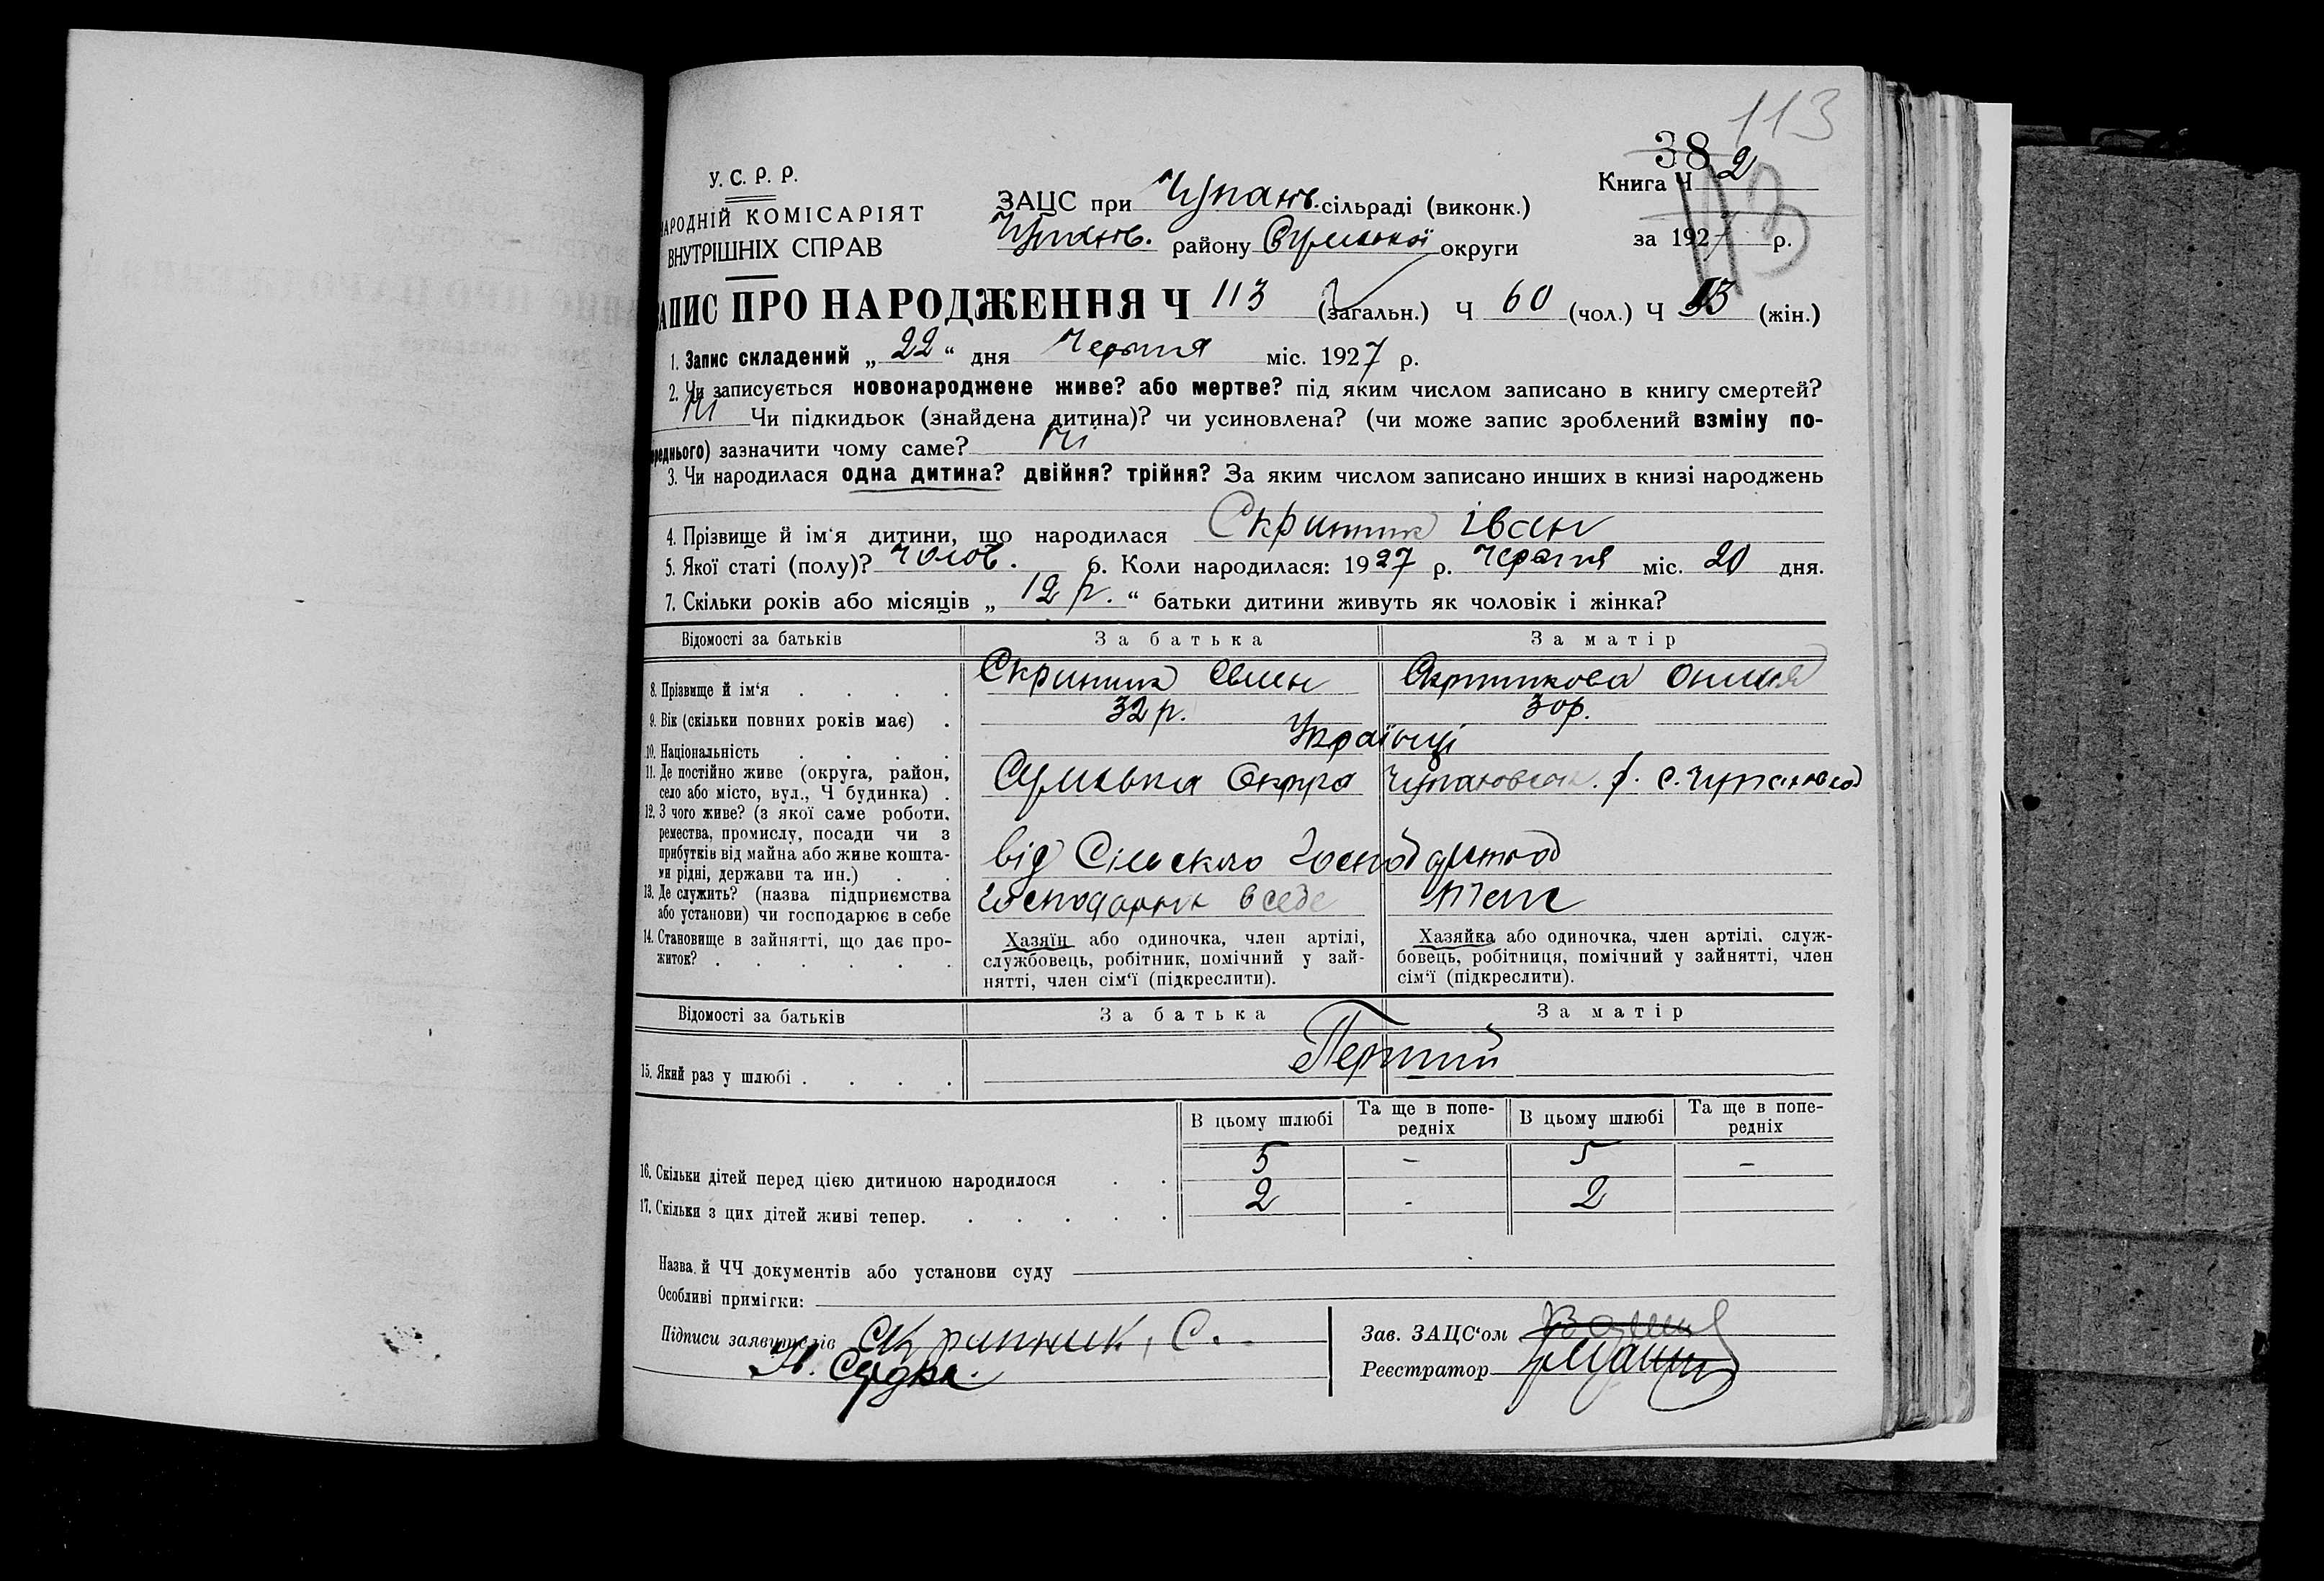 113
38
Книга Ч 2
113
за 1927 р.
У. С. Р. Р.
НАРОДНІЙ КОМІСАРІЯТ
ВНУТРІШНІХ СПРАВ
ЗАЦС при Чупахів. сільраді (виконк.)
Чупахів. району Сумської округи
ЗАПИС ПРО НАРОДЖЕННЯ Ч 113 (загальн.) Ч 60 (чол.) Ч 53 (жін.)
1. Запис складений „ 22 “ дня Червня міс. 1927 р.
2. Чи записується новонароджене живе? або мертве? під яким числом записано в книгу смертей?
ні Чи підкидьок (знайдена дитина)? чи усиновлена? (чи може запис зроблений взміну по-
переднього) зазначити чому саме? ні
3. Чи народилася одна дитина? двійня? трійня? За яким числом записано инших в книзі народжень
4. Прізвище й ім‘я дитини, що народилася Скрипник Іван
5. Якої статі (полу)? чолов. 6. Коли народилася: 1927 р. Червня міс. 20 дня.
7. Скільки років або місяців „ 12 р. “ батьки дитини живуть як чоловік і жінка?
Відомості за батьків За батька За матір
8. Прізвище й ім‘я . . . . Скрипник Семен Скрипникова
9. Вік (скільки повних років має) . 32 р. 30 р.
10. Національність . . . . Українці
11. Де постійно живе (округа, район,
село або місто, вул., Ч будинка) . Сумська Округа р. с.
12. З чого живе? (з якої саме роботи,
ремества, промислу, посади чи з
прибутків від майна або живе кошта-
ми рідні, держави та ин.) . . від Сільского
13. Де служить? (назва підприємства
або установи) чи господарює в себе в себе теж
14. Становище в зайнятті, що дає про-
житок? . . . . . .
Хазяїн або одиночка, член артілі,
службовець, робітник, помічний у зай-
нятті, член сім‘ї (підкреслити).
Хазяйка або одиночка, член артілі. служ-
бовець, робітниця, помічний у зайнятті, член
сім‘ї (підкреслити).
Відомості за батьків За батька За матір
15. Який раз у шлюбі . . . . Перший
В цьому шлюбі Та ще в попе-
редніх В цьому шлюбі Та ще в попе-
редніх
16. Скільки дітей перед цією дитиною народилося . . 5 - 5 -
17. Скільки з цих дітей живі тепер. . . . . . 2 - 2
Назва й ЧЧ документів або установи суду
Особливі примітки:
Підписи заявителів Скрипник, С.
Н.
Зав. ЗАЦС‘ом
Реєстратор